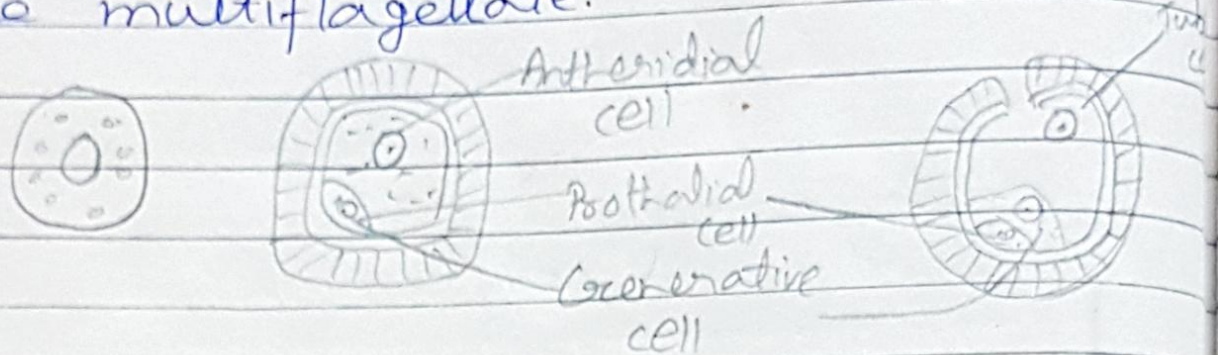 multiflagellate.
Antheridial
cell
Prothalial
cell
Generative
cell